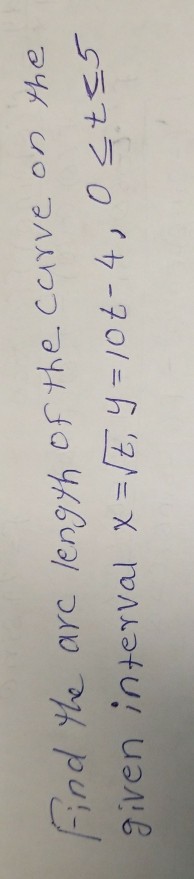 Find the arc length of the curve on the
given interval x=√t, y=10t-4, 0≤t≤5